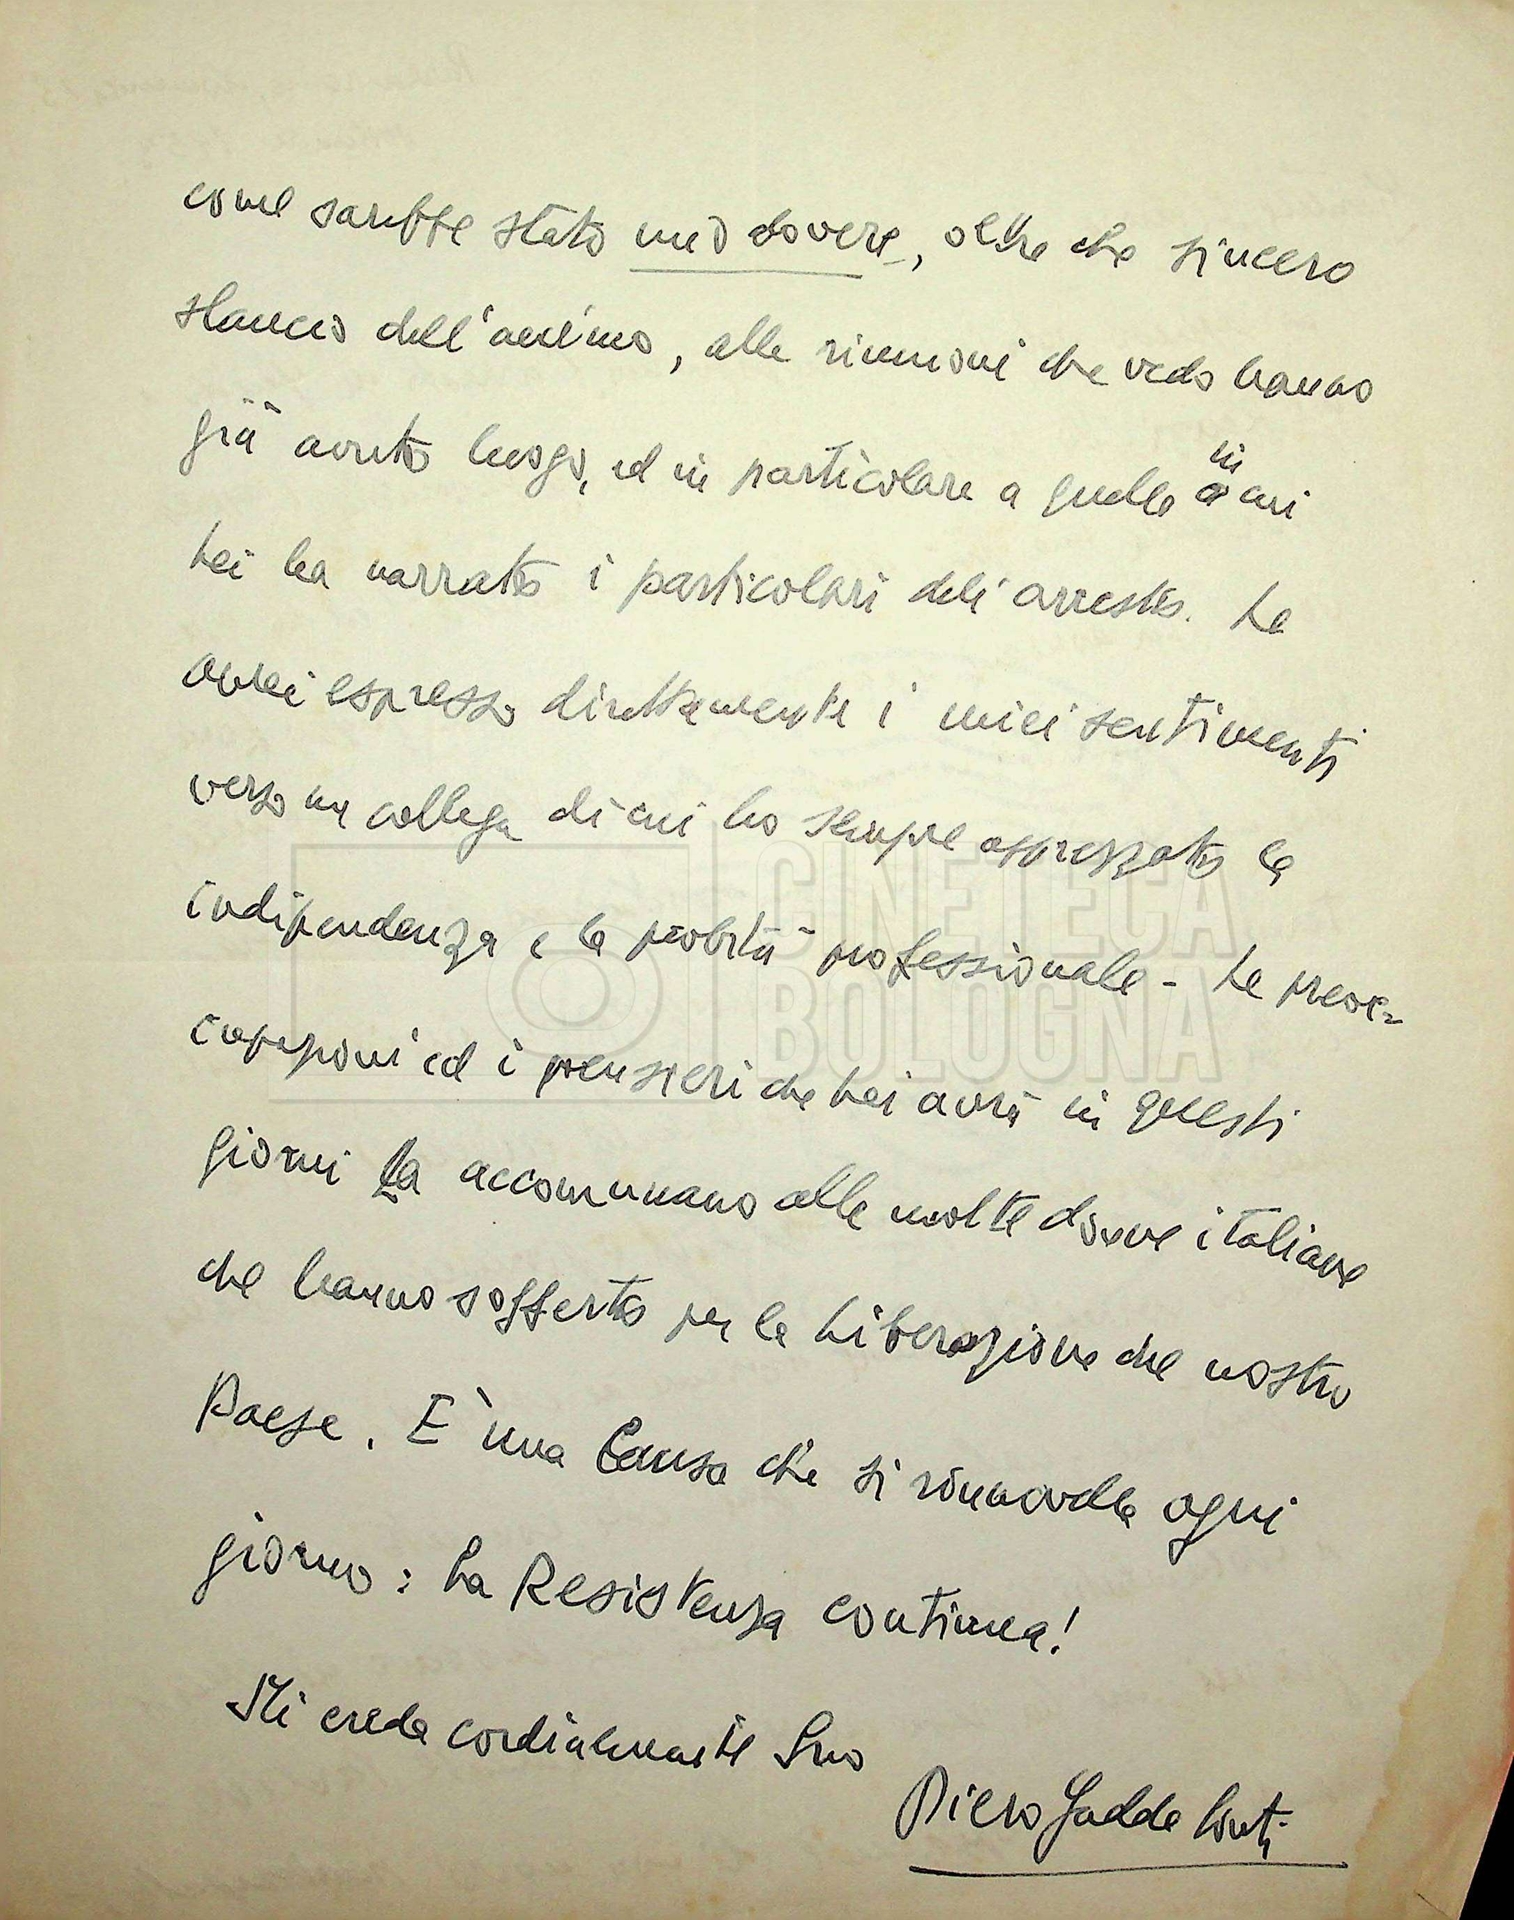 come sarebbe stato mio dovere, oltre che sincero
slancio dell'animo, alle riunioni che vedo hanno
già avuto luogo, ed in particolare a quella in cui
Lei ha narrato i particolari dell'arresto. Le
avrei espresso direttamente i miei sentimenti
verso un collega di cui ho sempre apprezzato la
indipendenza e la probità professionale - Le preoc=
cupazioni ed i pensieri che Lei avrà in questi
giorni La accomunano alle molte donne italiane
che hanno sofferto per la Liberazione del nostro
Paese. E' una Causa che si rinnovella ogni
giorno: La Resistenza continua!
Mi creda cordialmente Suo
Piero Gadda Conti
CINETECA
BOLOGNA